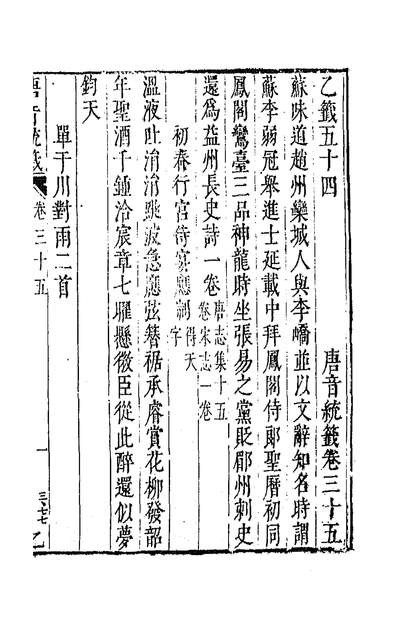 乙籤五十四　唐音統籤卷三十五
蘇味道趙州欒城人與李嶠並以文辭知名時謂
蘇李弱冠舉進士延載中拜鳳閣侍郎聖曆初同
鳳閣鸞臺三品神龍時坐張易之黨貶郿州刺史
還爲益州長史詩一卷唐志集十五
卷宋志一卷
初春行宮侍宴應制得天
字
溫液吐涓涓跳波急應弦簪裾承睿賞花柳發韶
年聖酒千鍾洽宸章七曜懸微臣從此醉還似夢
鈞天
單于川對雨二首
唐音統籤　卷三十五　一　乙